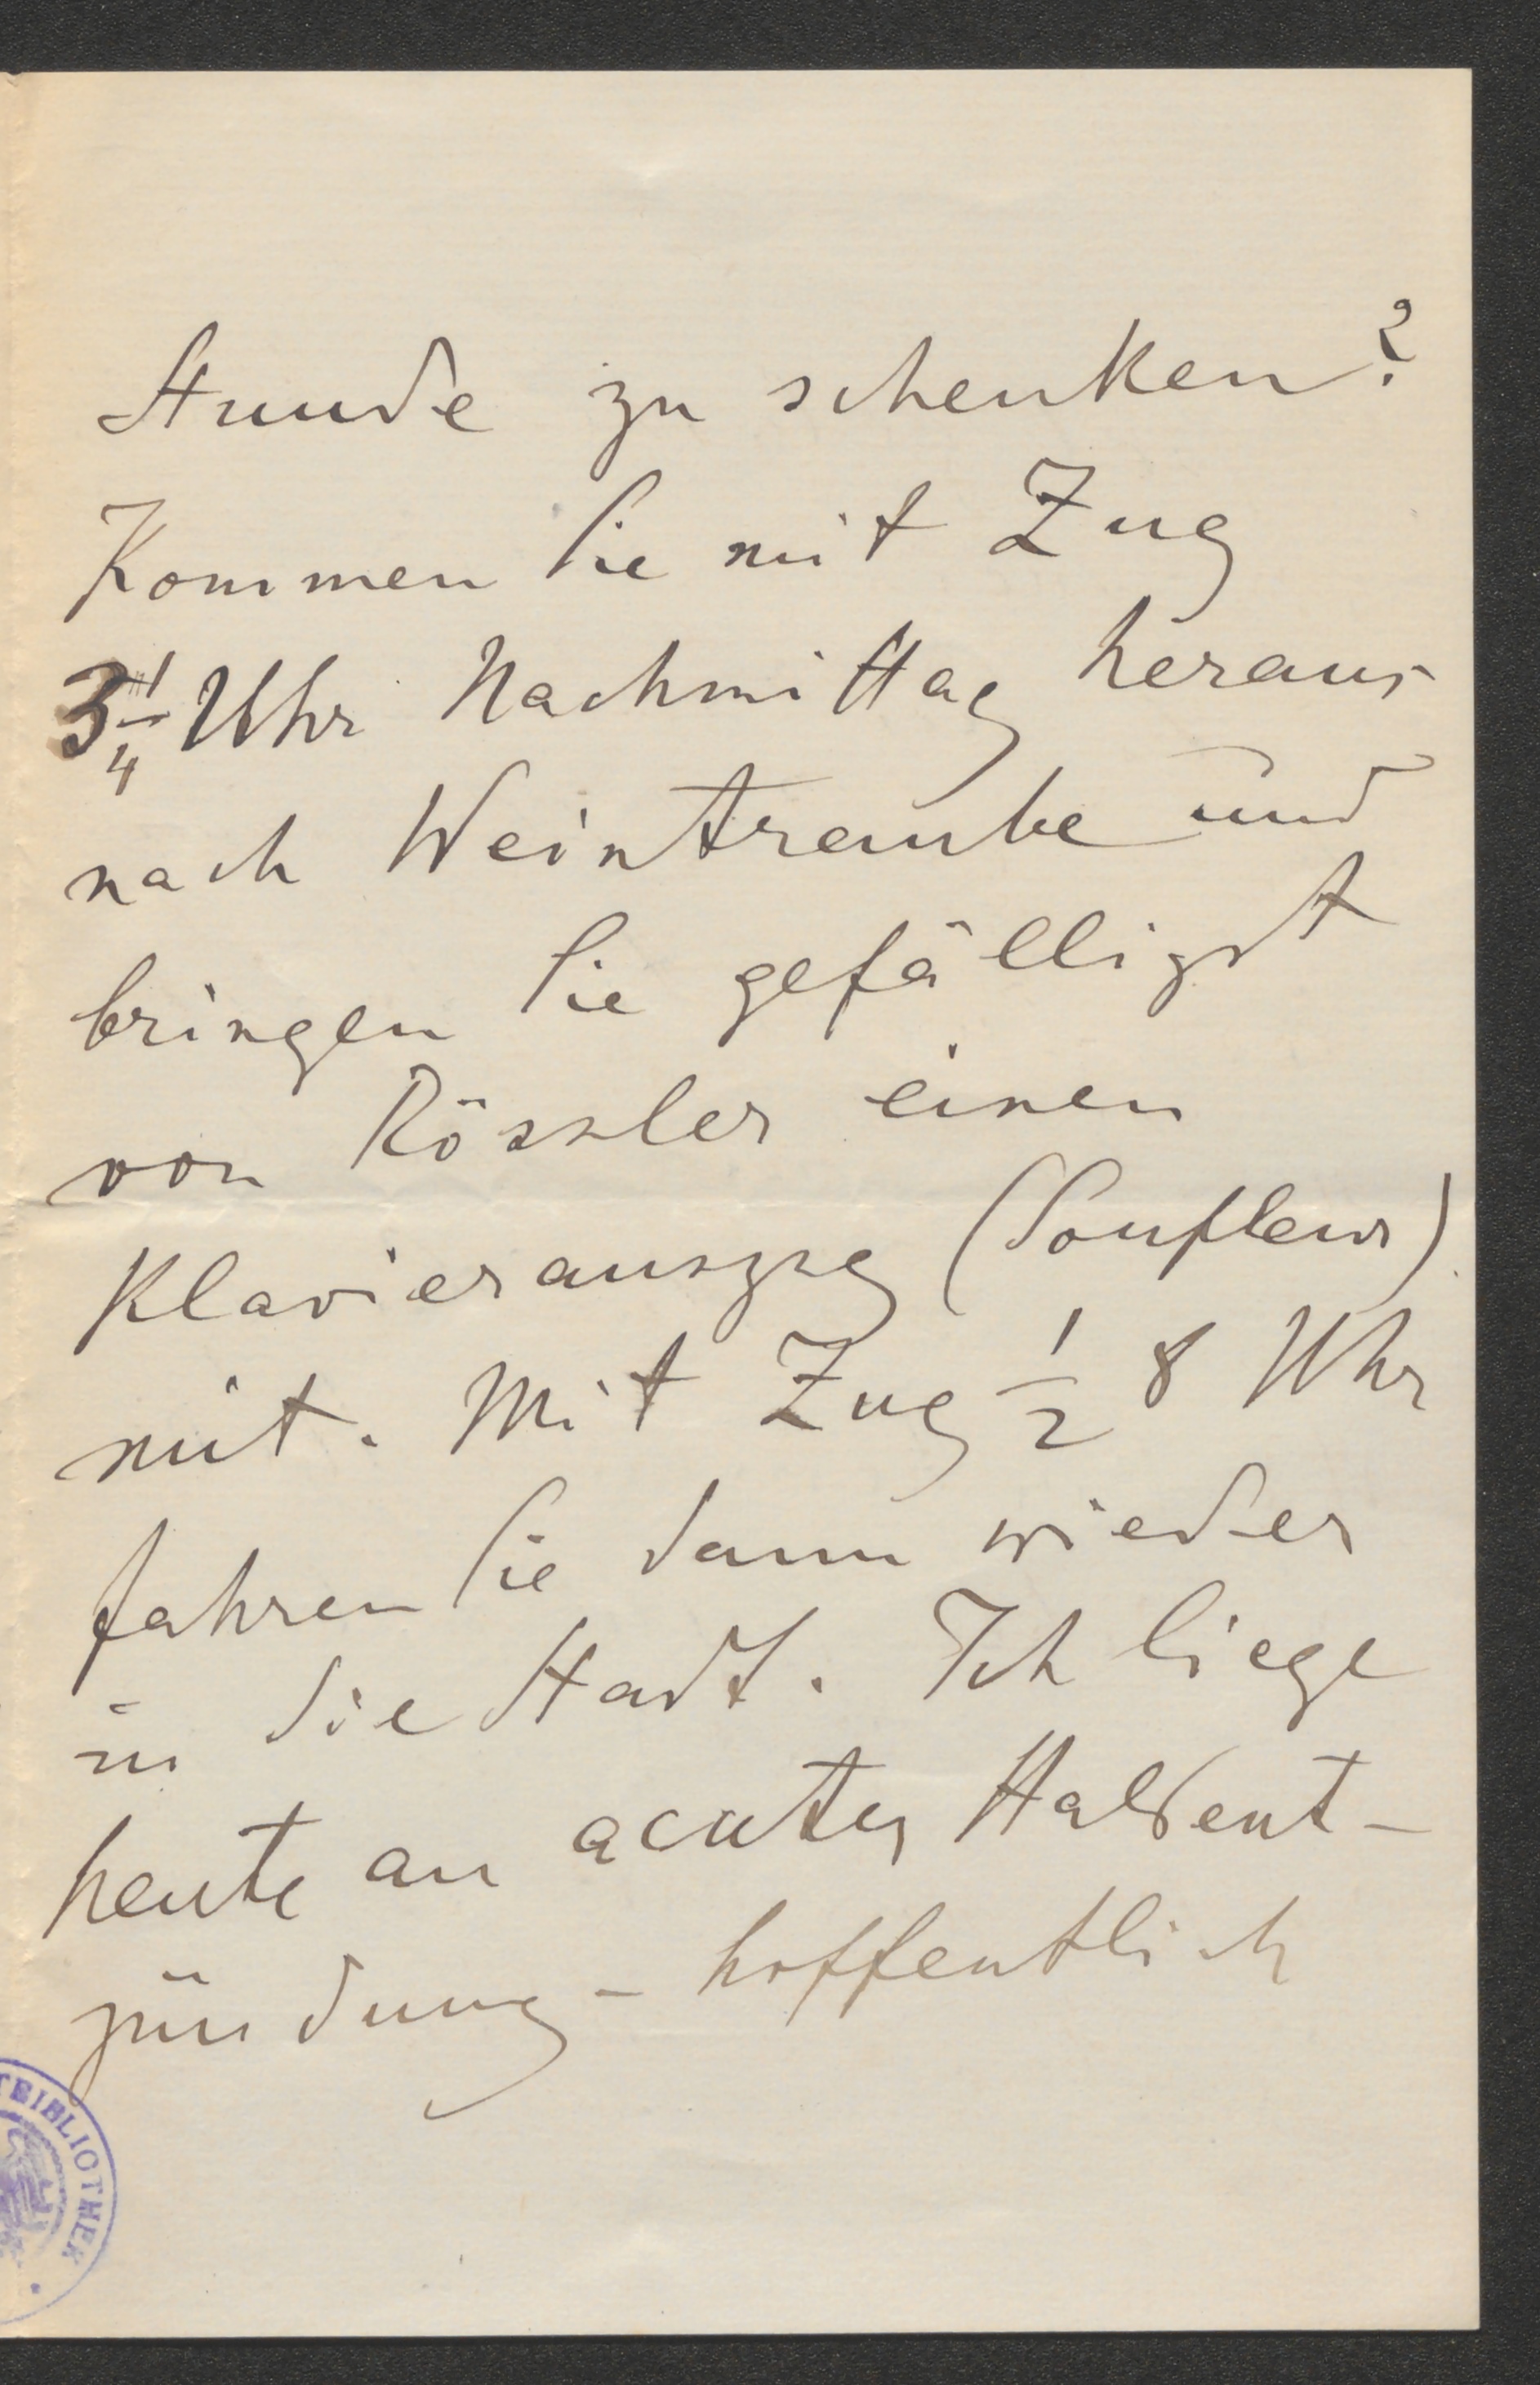 Stunde zu schenken?
Kommen Sie mit Zug
3 1/4 Uhr Nachmittag heraus
nach Weintraube und
bringen Sie gefälligst
von Rössler einen
Klavierauszug (Soufleur)
mit. Mit Zug 1/2 8 Uhr
fahren Sie dann wieder
in die Stadt. Ich liege
heute an acuter Halsent-
zündung - hoffentlich
TBIBLIOTHEK